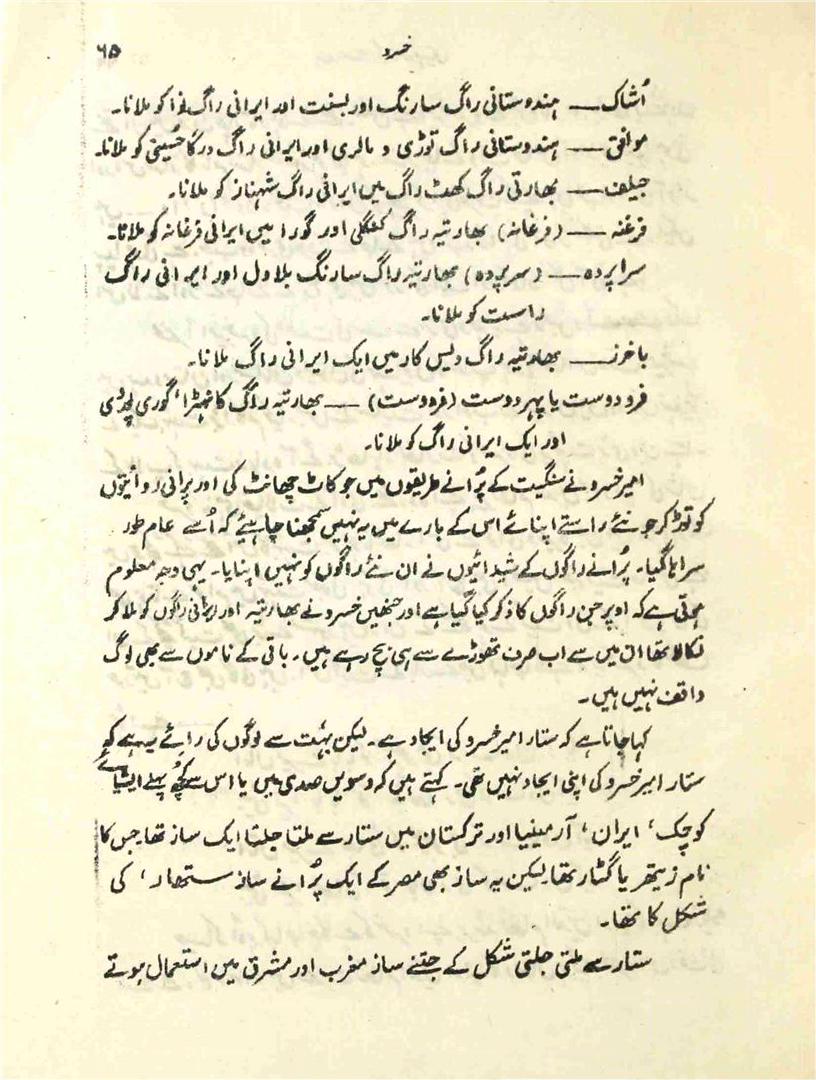 خسرو ۶۵
اُشاک ـــ ہندوستانی راگ سارنگ اور بسنت اور ایرانی راگ نوا کو ملانا۔
موافق ـــ ہندوستانی راگ توڑی و مالری اور ایرانی راگ درگاہ حسینی کو ملانا۔
جیلف ـــ بھارتی راگ کھٹ راگ میں ایرانی راگ شہناز کو ملانا۔
فرغنہ ـــ (فرغانہ) بھارتیہ راگ کنگلی اور گورا میں ایرانی فرغانہ کو ملانا۔
سراپردہ ـــ (سرپردہ) بھارتیہ راگ سارنگ بلاول اور ایرانی راگ
راست کو ملانا۔
باخرز ـــ بھارتیہ راگ دیس کار میں ایک ایرانی راگ ملانا۔
فرودوست یا پہردوست (فردوست) ـــ بھارتیہ راگ کانہڑا، گوری پوربی
اور ایک ایرانی راگ کو ملانا۔
امیر خسرو نے سنگیت کے پُرانے طریقوں میں جو کاٹ چھانٹ کی اور پرانی روائیتوں
کو توڑ کر جو نئے راستے اپنائے اس کے بارے میں یہ نہیں سمجھنا چاہیئے کہ اُسے عام طور
سراہا گیا۔ پُرانے راگوں کے شیدائیوں نے ان نئے راگوں کو نہیں اپنایا۔ یہی وجہ معلوم
ہوتی ہے کہ اوپر جن راگوں کا ذکر کیا گیا ہے اور جنھیں خسرو نے بھارتیہ اور ایرانی راگوں کو ملا کر
نکالا تھا ان میں سے اب صرف تھوڑے سے ہی بچ رہے ہیں۔ باقی کے ناموں سے بھی لوگ
واقف نہیں ہیں۔
کہا جاتا ہے کہ ستار امیر خسرو کی ایجاد ہے۔ لیکن بہُت سے لوگوں کی رائے یہ ہے کہ
ستار امیر خسرو کی اپنی ایجاد نہیں تھی۔ کہتے ہیں کہ دسویں صدی میں یا اس سے کچُھ پہلے ایشیائے
کوچک، ایران، آرمینیا اور ترکستان میں ستار سے ملتا جلتا ایک ساز تھا۔ جس کا
نام زیتھر یا گٹار تھا۔ لیکن یہ ساز بھی مصر کے ایک پُرانے ساز ستھار، کی
شکل کا تھا۔
ستار سے ملتی جلتی شکل کے جتنے ساز مغرب اور مشرق میں استعمال ہوتے